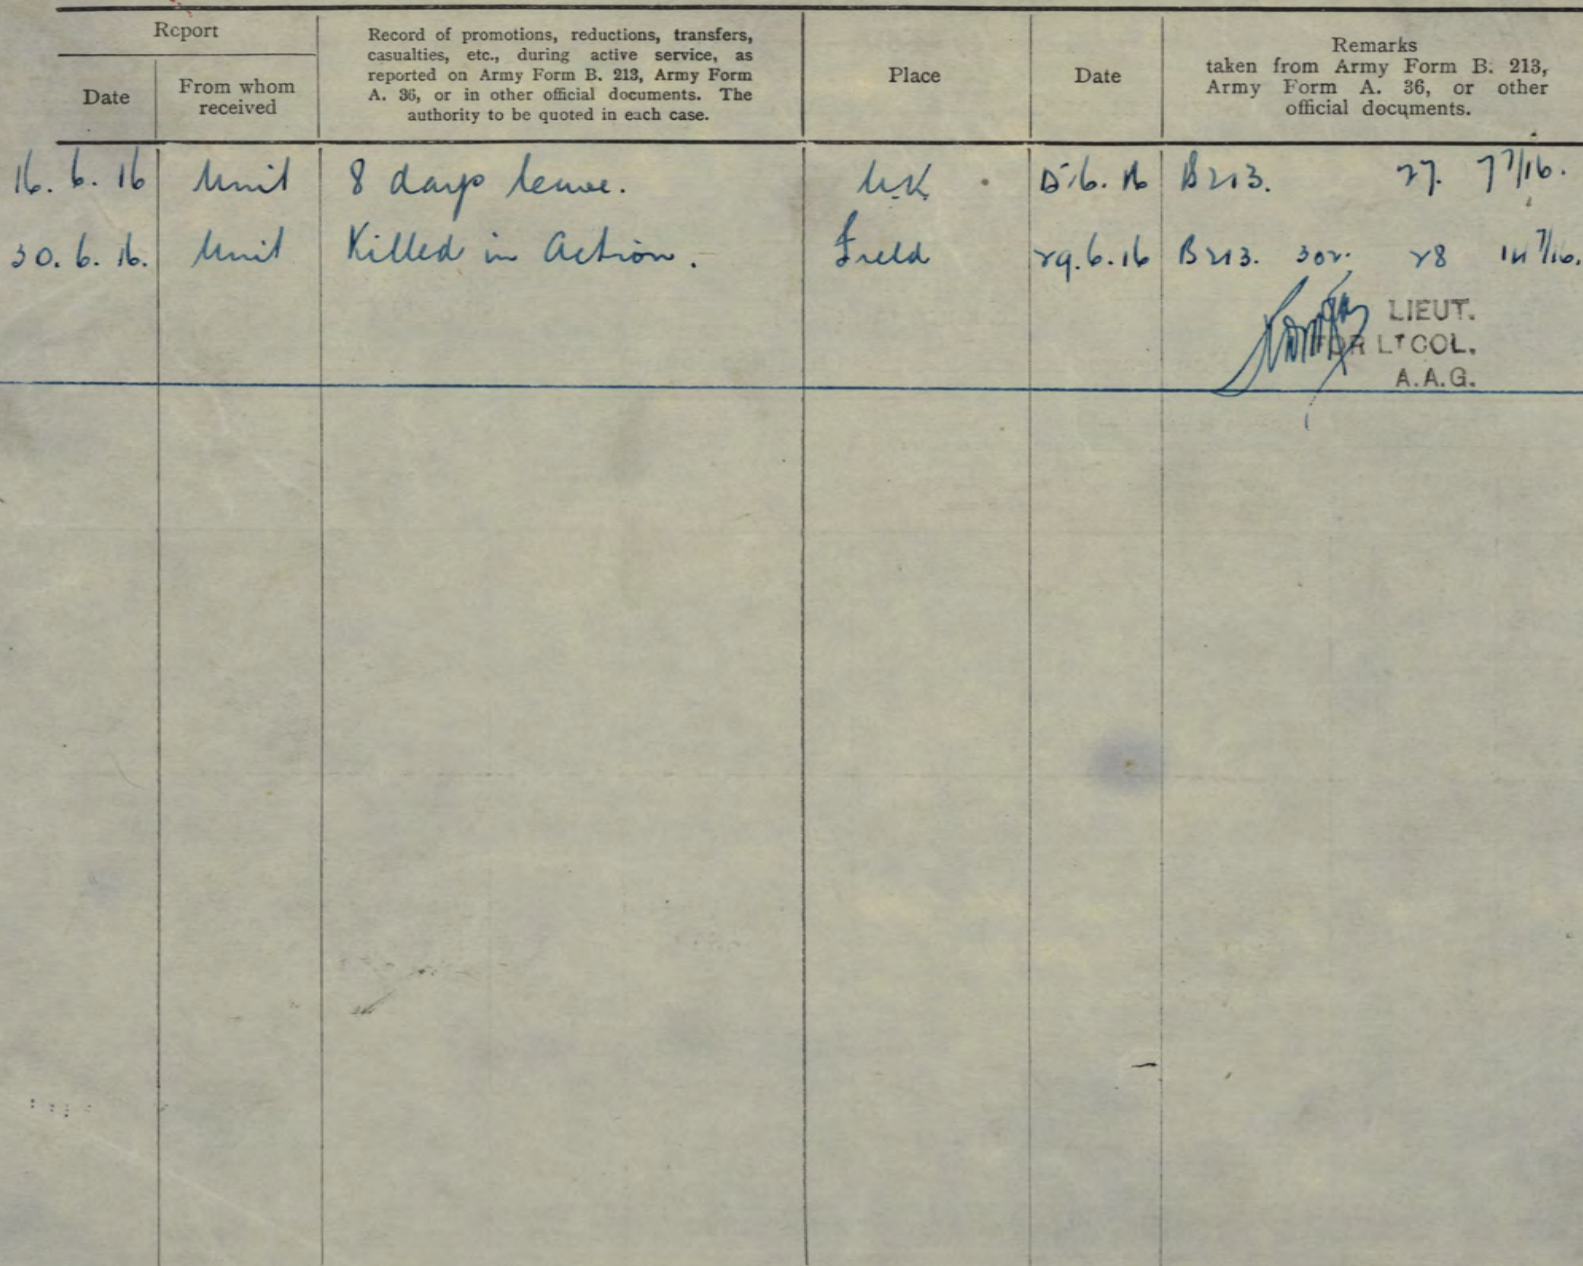 Report
Date
From whom
received
Record of promotions, reductions, transfers,
casualties, etc., during active service, as
reported on Army Form B. 213, Army Form
A. 36, or in other official documents. The
authority to be quoted in each case.
Place
Date
Remarks
taken from Army Form B. 213,
Army Form A. 36, or other
official documents.
16. 6. 16 Unit 8 days leave. U.K. 6. 16 B213. 27. 7 7/16.
30. 6. 16. Unit Killed in Action. Field 29.6.16 B213. 302. 28 14 7/16.
LIEUT.
FOR LT COL.
A.A.G.